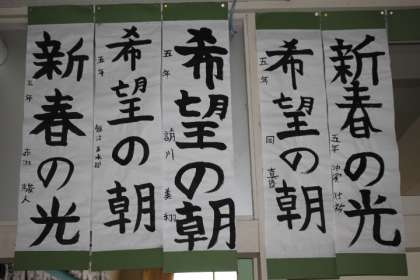 新春の光
五年
希望の朝
五年
希望の朝
五年
希望の朝
五年
新春の光
五年